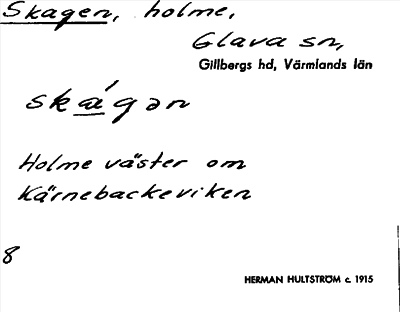 Skagen, holme,
Glava sn,
Gillbergs hd, Värmlands län
skágən
Holme väster om
Kärnebackeviken
8
HERMAN HULTSTRÖM c. 1915